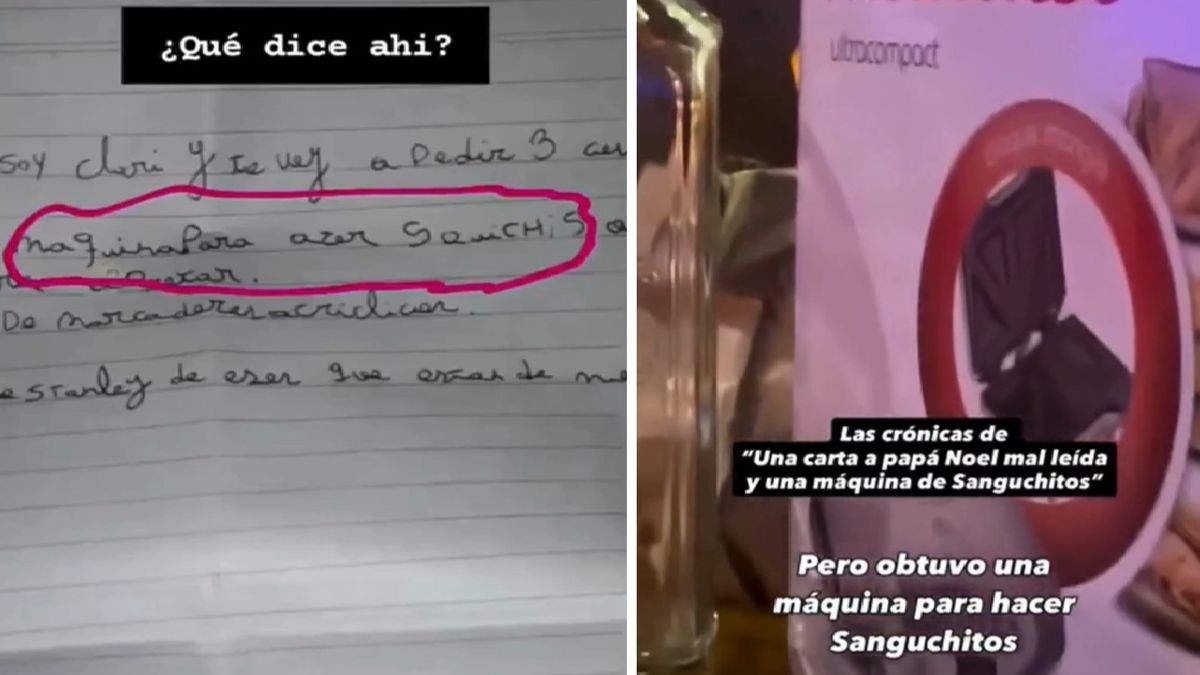 ¿Qué dice ahi?
soy clari y te voy a pedir 3
maquina para aser SquicHiS
De marcadores acriclicos.
stanley de eser que estan de
ultracompact
Las crónicas de
“Una carta a papá Noel mal leída
y una máquina de Sanguchitos”
Pero obtuvo una
máquina para hacer
Sanguchitos